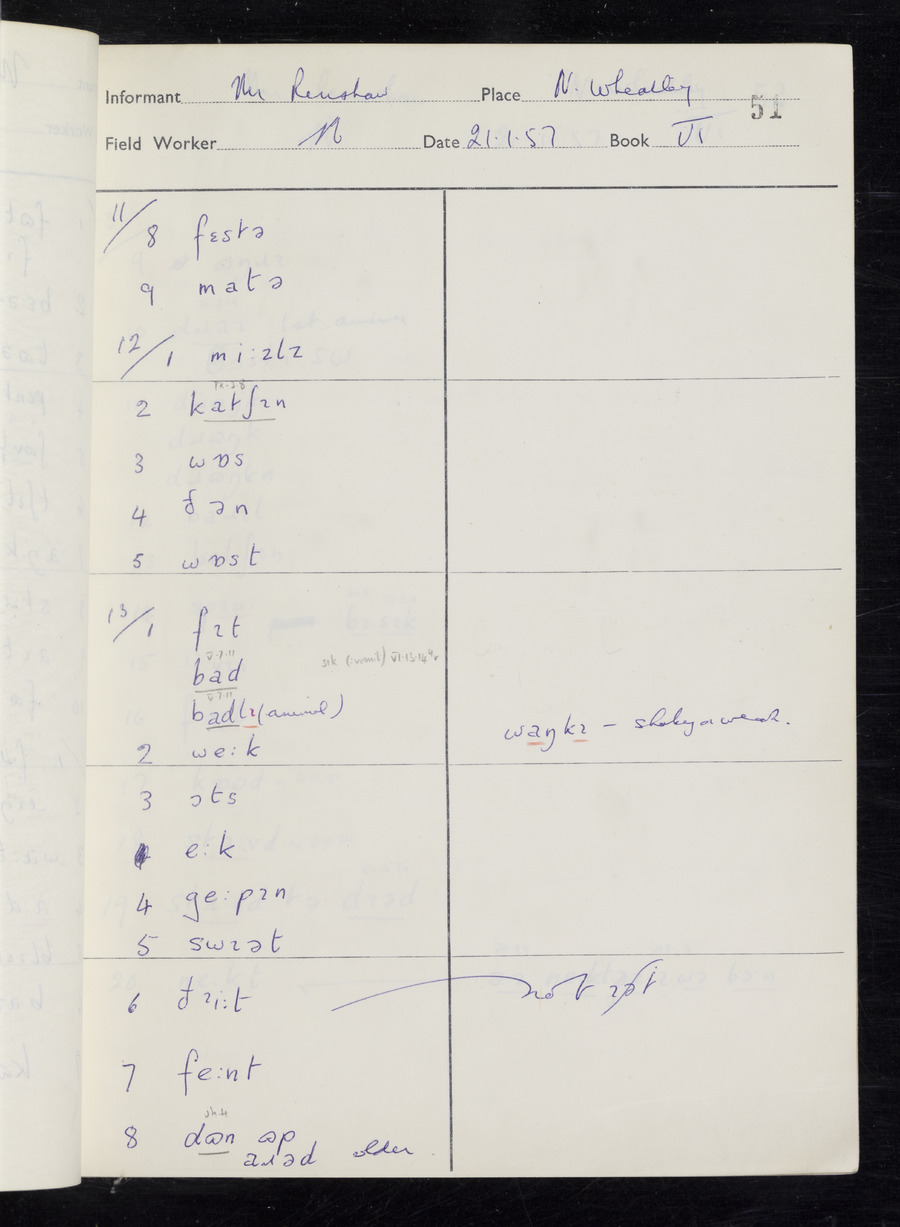 Informant Mr Renshaw Place N. Wheatley 51
Field Worker N Date 21.1.57 Book VI
11/8 fɛstə
9 matə
12/1 miːzlz
2 katʃɪn
3 wɒs
4 ðən
5 wɒst
13/1 fɪt
V.7.11
bad sɪk (:vomit) VI.13.14
V.7.11
badlɪ (animal)
waŋkɪ – shaky or weak.
2 weːk
3 ɔts
eːk
4 geːpɪn
5 swɪət
6 ðɪːt not
7 feːnt
8 dɷn ɷp
aɪəd older